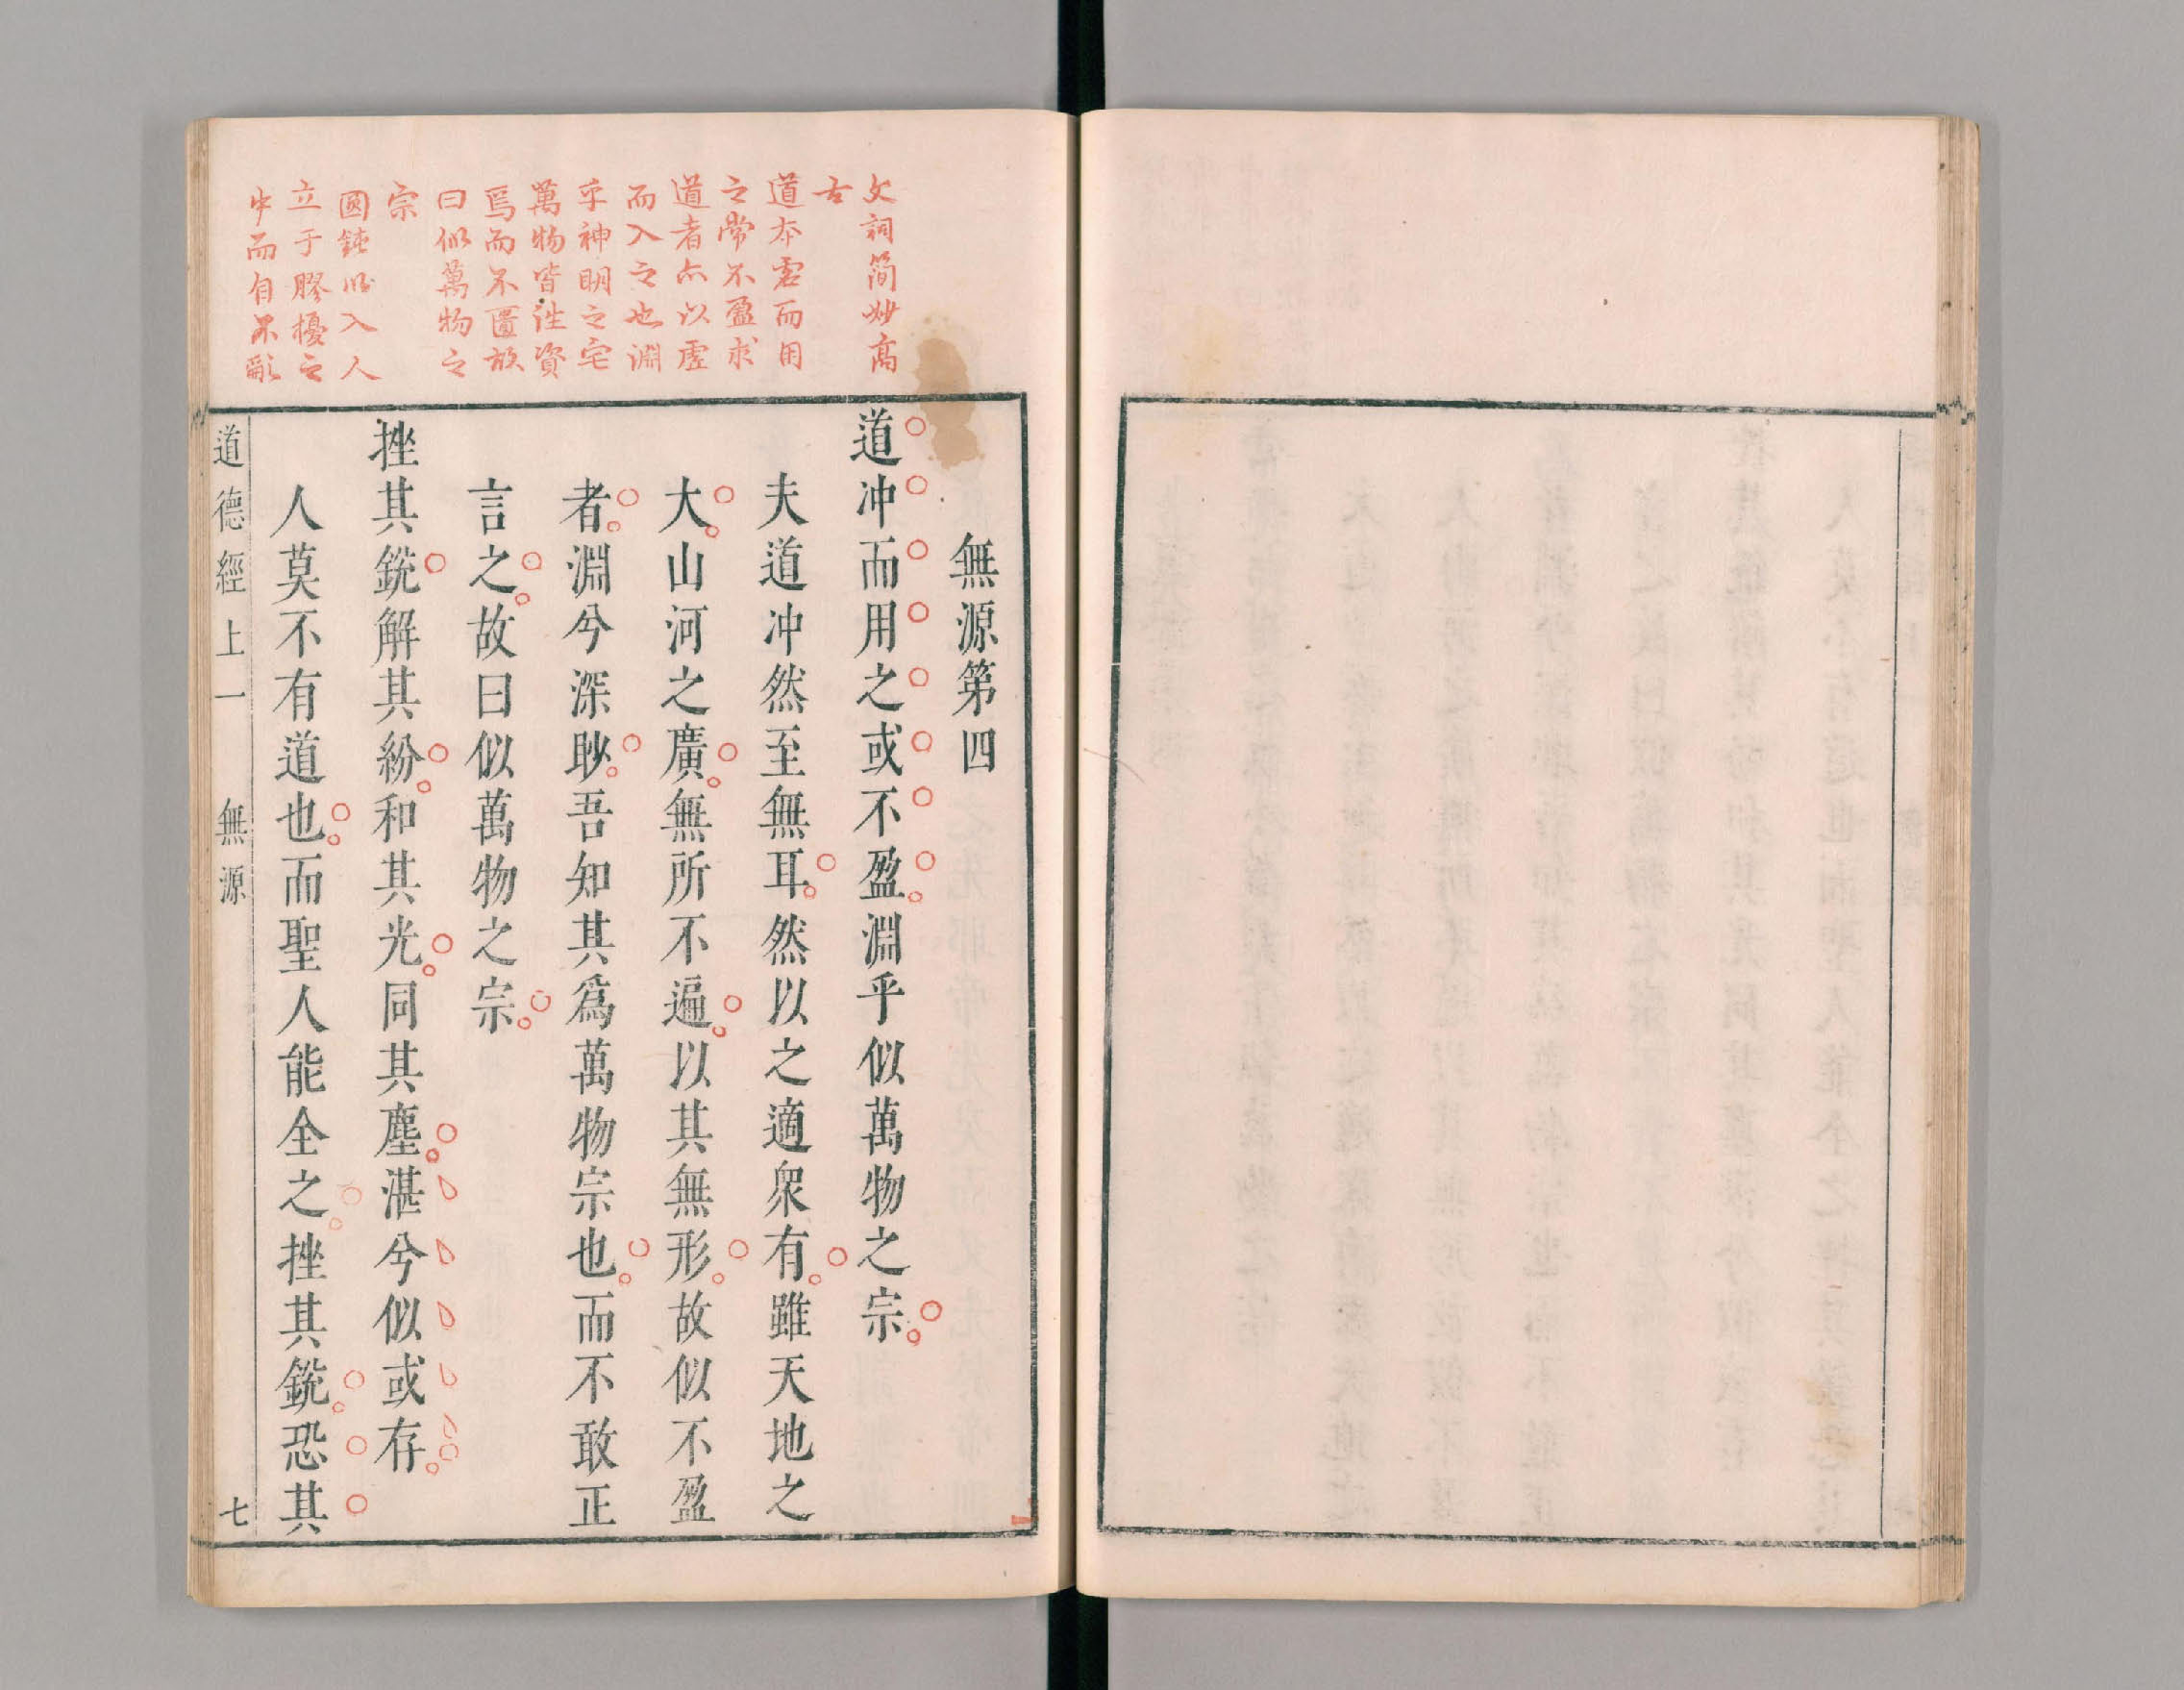 文詞簡妙高
古
道本虛而用
之常不盈求
道者亦以虛
而入之也淵
乎神明之宅
萬物皆往資
焉而不匱故
曰似萬物之
宗
鈍以入人
立于膠擾之
中而自不亂
無源第四
道冲而用之或不盈淵乎似萬物之宗
夫道冲然至無耳然以之適衆有雖天地之
大山河之廣無所不遍以其無形故似不盈
者淵兮深眇吾知其爲萬物宗也而不敢正
言之故曰似萬物之宗
挫其銳解其紛和其光同其塵湛兮似或存
人莫不有道也而聖人能全之挫其銳恐其
道德經上一 無源 七